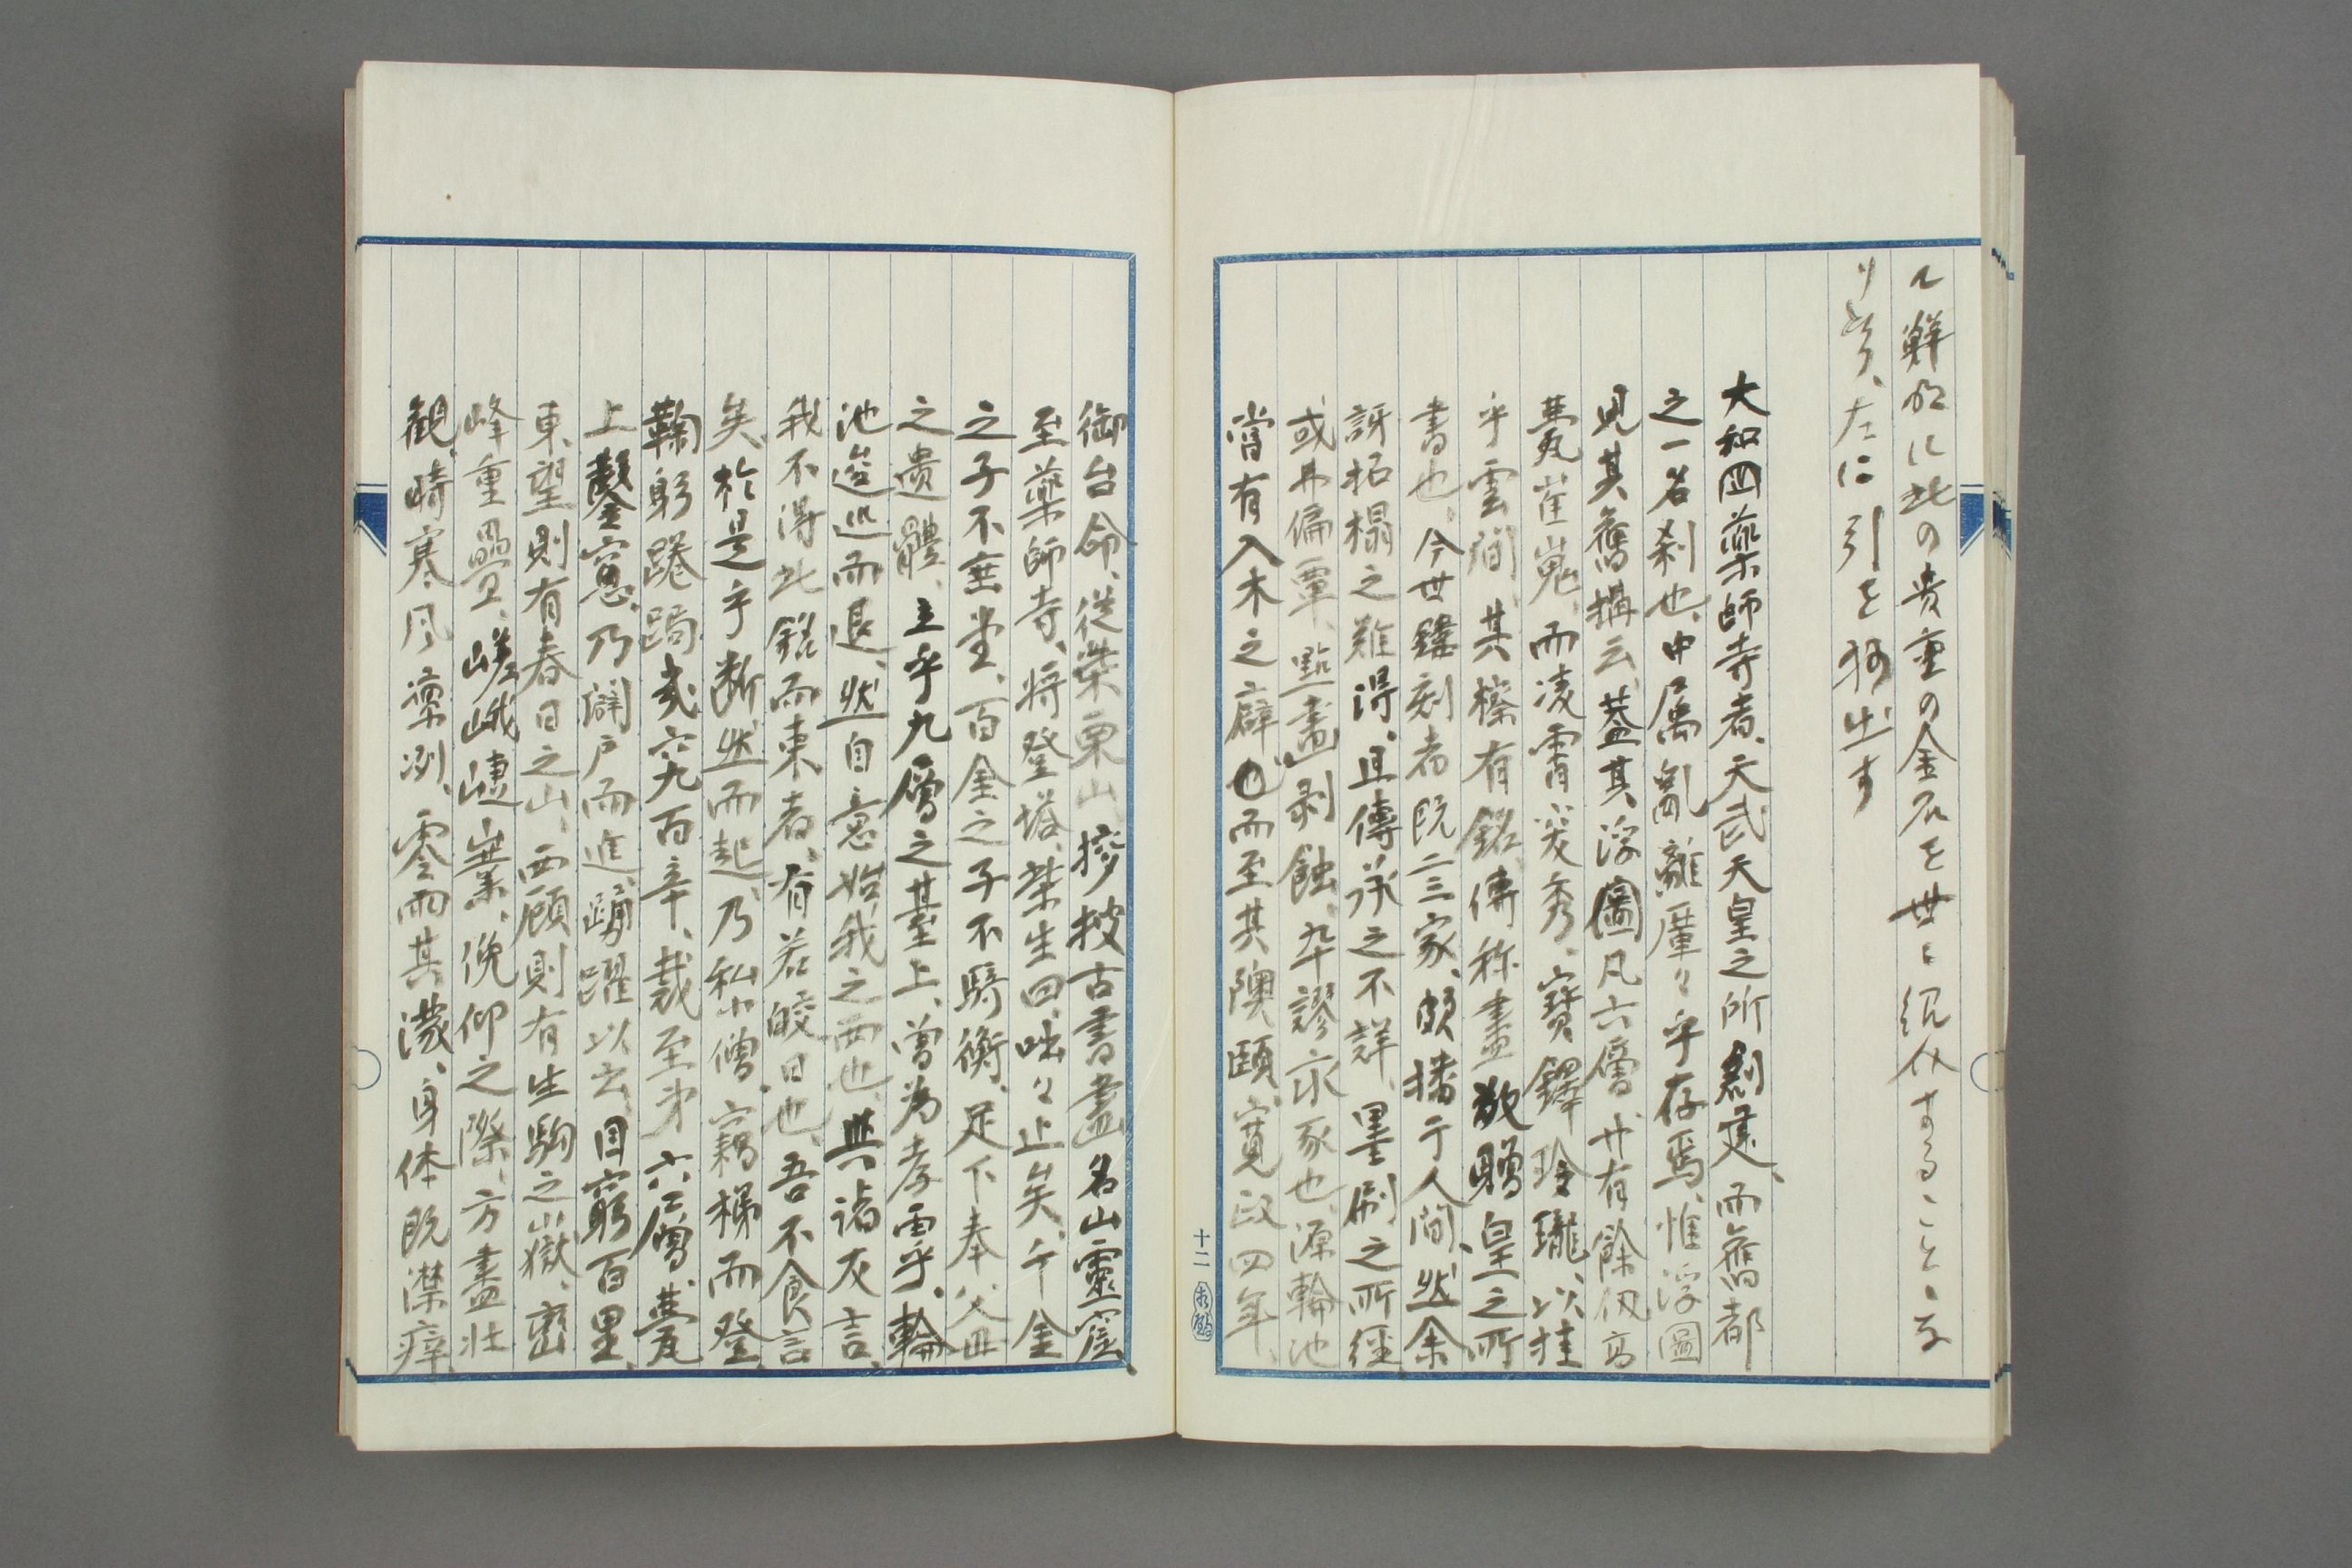 ル鮮明に此の貴重の金石を世に紹介することゝな
り、左に引を抄出す
大和国薬師寺者、天武天皇之所創建、而舊都
之一名刹也、中属亂離、厪々乎存焉、惟浮圖
見其舊搆云、蓋其浮圖凡六層、廿有餘仭、高
甍崔嵬、而凌霄突秀、寶鐸玲瓏、以挂
乎雲間、其檫有銘、傳称畫歟贈皇之所
書也、今世鐫刻者既二三家、頗播于人間、然余
訝拓榻之難得、且傳承之不詳、墨刷之所經
或弗偏覃、點畫剥蝕、卒謬亥豕也、源輪池
嘗有入木之癖、而至其隩頤、寛政四年、
御台命、從柴栗山、捜披古書畫名山靈窟、
至薬師寺、将登塔、柴生曰、咄々止矣、千金
之子不垂堂、百金之子不騎衡、足下奉父毋
之遺體、立乎九層之基上、曽為孝乎、輪
池逡巡而退、然自意始我之西也、與諸友言、
我不得此銘而東者、有若皦日也、吾不食言
矣、於是乎断然而起、乃私小僧、竊梯而登、
鞠躬踡跼、弐六九百辛、裁至第六層甍
上、鑿窓、乃闢戸而進、踴躍以去、目窮百里、
東望則有春日之山、西顧則有生駒之嶽、巒
峰重疊、嵯峨崨嶪、俛仰之際、方盡壮
観、時寒风凜冽、零雨其濛、身体既㦗瘁
十二